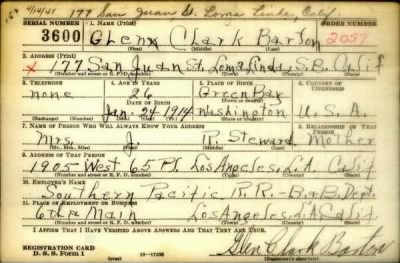 9/14/41 177 San Juan St. Loma Linda, Calif.
SERIAL NUMBER 1. NAME (Print) ORDER NUMBER
3600 Glenn Clark Barton 2057
(First) (Middle) (Last)
2. ADDRESS (Print)
x 177 San Juan St. Loma Linda, S.B. Calif
(Number and street or R. F. D. number) (Town) (County) (State)
3. TELEPHONE 4. AGE IN YEARS 5. PLACE OF BIRTH 6. COUNTRY OF CITIZENSHIP
none 26 Green Bay
DATE OF BIRTH (Town or county)
Jan. 24 1914 Washington U. S. A.
(Exchange) (Number) (Mo.) (Day) (Yr.) (State or country)
7. NAME OF PERSON WHO WILL ALWAYS KNOW YOUR ADDRESS 8. RELATIONSHIP OF THAT PERSON
Mrs. J. R. Steward Mother
(Mr., Mrs., Miss) (First) (Middle) (Last)
9. ADDRESS OF THAT PERSON
1905 West 65 Pl. Los Angeles, L.A. Calif.
(Number and street or R. F. D. number) (Town) (County) (State)
10. EMPLOYER'S NAME
Southern Pacific R.R. - B.&B. Dept.
11. PLACE OF EMPLOYMENT OR BUSINESS
6th & Main Los Angeles, L.A. Calif.
(Number and street or R. F. D. number) (Town) (County) (State)
I AFFIRM THAT I HAVE VERIFIED ABOVE ANSWERS AND THAT THEY ARE TRUE.
REGISTRATION CARD
D. S. S. Form 1 Glen Clark Barton
(Registrant's signature)